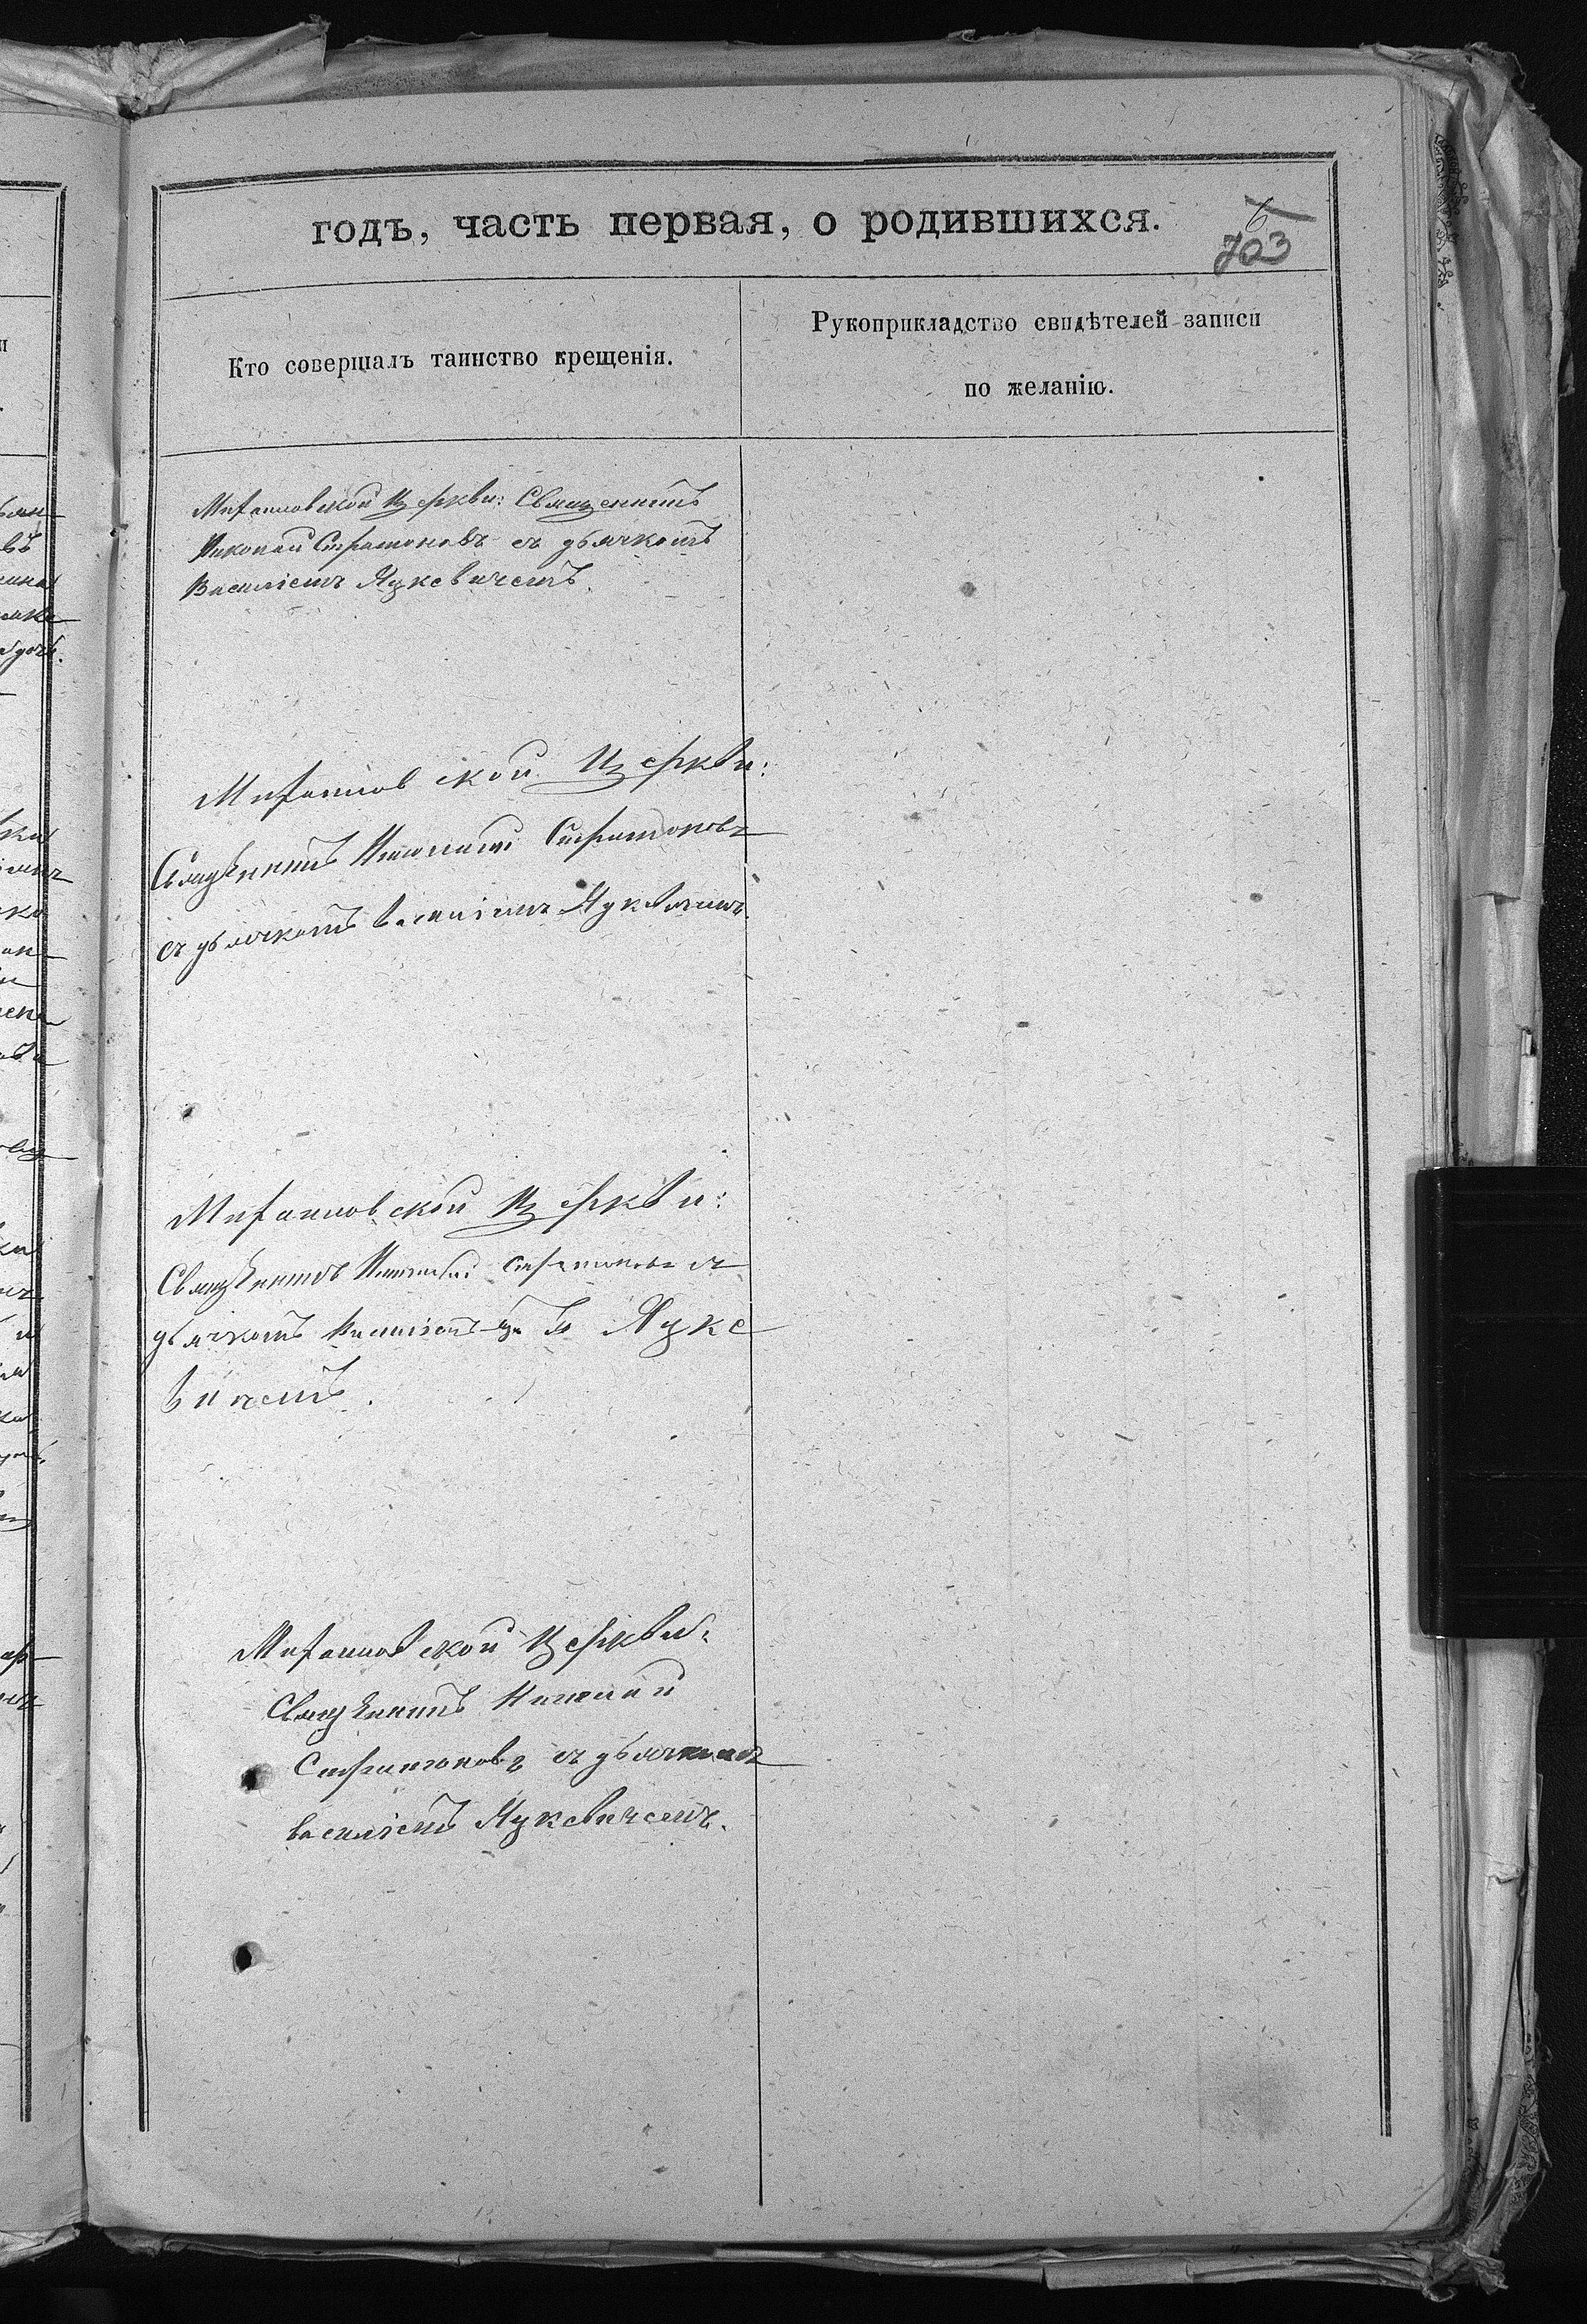 годъ, часть первая, о родившихся.
6
703
Кто совершалъ таинство крещенія.
Рукоприкладство свидѣтелей записи
по желанію.
Церкви: Священникъ
Николай Стратоновъ съ дьячкомъ
Василіемъ Яцкевичемъ.
Церкви:
Священникъ Николай Стратоновъ
съ дьячкомъ Василіемъ Яцкевичемъ.
Церкви:
Священникъ Николай Стратоновъ съ
дьячкомъ Василіемъ Яцке
вичемъ.
Церкви:
Священникъ Николай
Стратоновъ съ дьячкомъ
Василіемъ Яцкевичемъ.